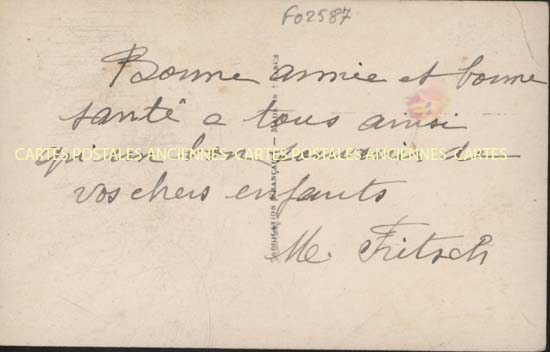 F02587
Bonne année et bonne
santé a tous ainsi
qu'un bon souvenir de
CARTES POSTALES ANCIENNES - CARTES POSTALES ANCIENNES - CARTES
vos chers enfants
Me. Fritsch